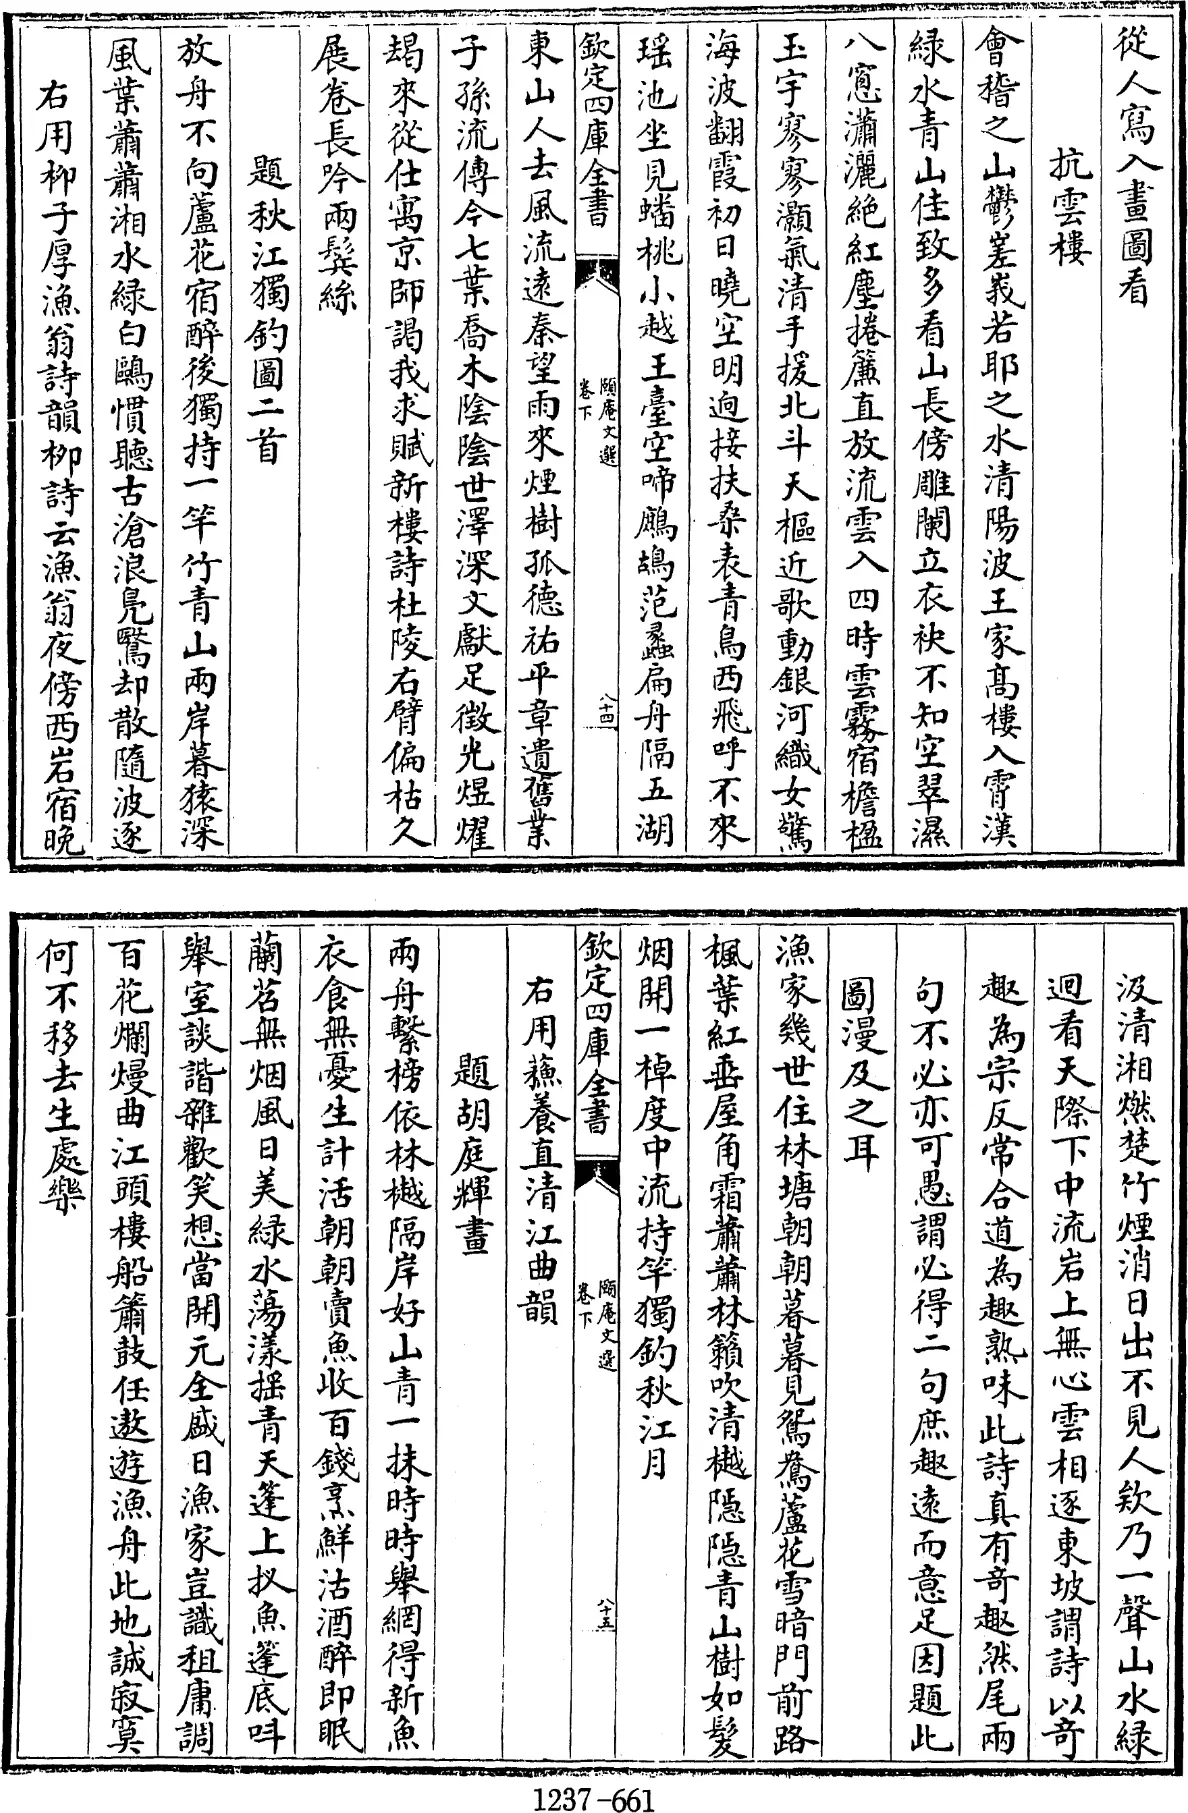 從人寫入畫圖看
抗雲樓
會稽之山鬱嵳峩若耶之水清陽波王家髙樓入霄漢
緑水青山佳致多看山長傍雕闌立衣袂不知空翠濕
八窻瀟灑絶紅塵捲簾直放流雲入四時雲霧宿檐楹
玉宇寥寥灝氣清手援北斗天樞近歌動銀河織女驚
海波翻霞初日曉空明逈接扶桑表青鳥西飛呼不來
瑶池坐見蟠桃小越王臺空啼鷓鴣范蠡扁舟隔五湖
欽定四庫全書
頤庵文選
卷下
八十四
東山人去風流遠秦望雨來煙樹孤德祐平章遺舊業
子孫流傳今七葉喬木陰陰世澤深文獻足徵光煜燿
朅來從仕寓京師謁我求賦新樓詩杜陵右臂偏枯久
展卷長吟兩鬂絲
題秋江獨釣圖二首
放舟不向蘆花宿醉後獨持一竿竹青山兩岸暮猿深
風葉蕭蕭湘水緑白鷗慣聽古滄浪鳬鷖却散隨波逐
右用柳子厚漁翁詩韻柳詩云漁翁夜傍西岩宿晩
汲清湘燃楚竹煙消日出不見人欸乃一聲山水緑
迴看天際下中流岩上無心雲相逐東坡謂詩以奇
趣為宗反常合道為趣熟味此詩真有奇趣然尾兩
句不必亦可愚謂必得二句庶趣遠而意足因題此
圖漫及之耳
漁家幾世住林塘朝朝暮暮見鴛鴦蘆花雪暗門前路
楓葉紅垂屋角霜蕭蕭林籟吹清樾隠隠青山樹如髮
烟開一棹度中流持竿獨釣秋江月
欽定四庫全書
頤庵文選
卷下
八十五
右用蘓養直清江曲韻
題胡庭輝畫
兩舟繫榜依林樾隔岸好山青一抹時時舉網得新魚
衣食無憂生計活朝朝賣魚收百錢烹鮮沽酒醉即眠
蘭苕無烟風日美緑水蕩漾揺青天篷上扠魚篷底呌
舉室談諧雜歡笑想當開元全盛日漁家豈識租庸調
百花爛熳曲江頭樓船簫鼓任遨遊漁舟此地誠寂寞
何不移去生處樂
1237-661